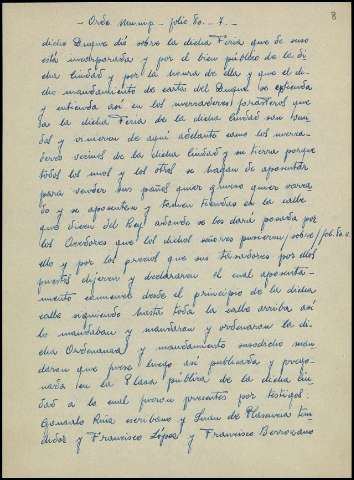 8
- Orde. Municip - folio 80. - 7. -
dicho Duque dió sobre la dicha Feria que de suso
está incorporada y por el bien público de la di
cha ciudad y por la honra de ella y que el di-
cho mandamiento de cartas del Duque se extienda
y entienda así en los mercaderes forasteros que
a la dicha Feria de la dicha ciudad son veni
dos y vinieren de aquí adelante como los merca-
deres vecinos de la dicha ciudad y su tierra porque
todos los unos y los otros se hagan de aposentar
para vender sus paños quier grueso quier varea
do y se aposenten y tomen tiendas en la calle
que dicen del Rey adonde se les dará posada por
los Veedores que los dichos señores pusieren /sobre/ fol. 80. v.
ello y por los precios que sus tasadores por ellos
puestos dijeren y declararen el cual aposenta-
miento comience desde el principio de la dicha
calle siguiendo hasta toda la calle arriba así
lo mandaban y mandaron y ordenaron la di-
cha Ordenanza y mandamiento susodicho man
daron que fuese luego así publicada y prego-
nada en la Plaza pública de la dicha ciu
dad a la cual fueron presentes por testigos:
Gonzalo Piña escribano y Juan de Plasencia ten
didor y Francisco López y Francisco Berrocano